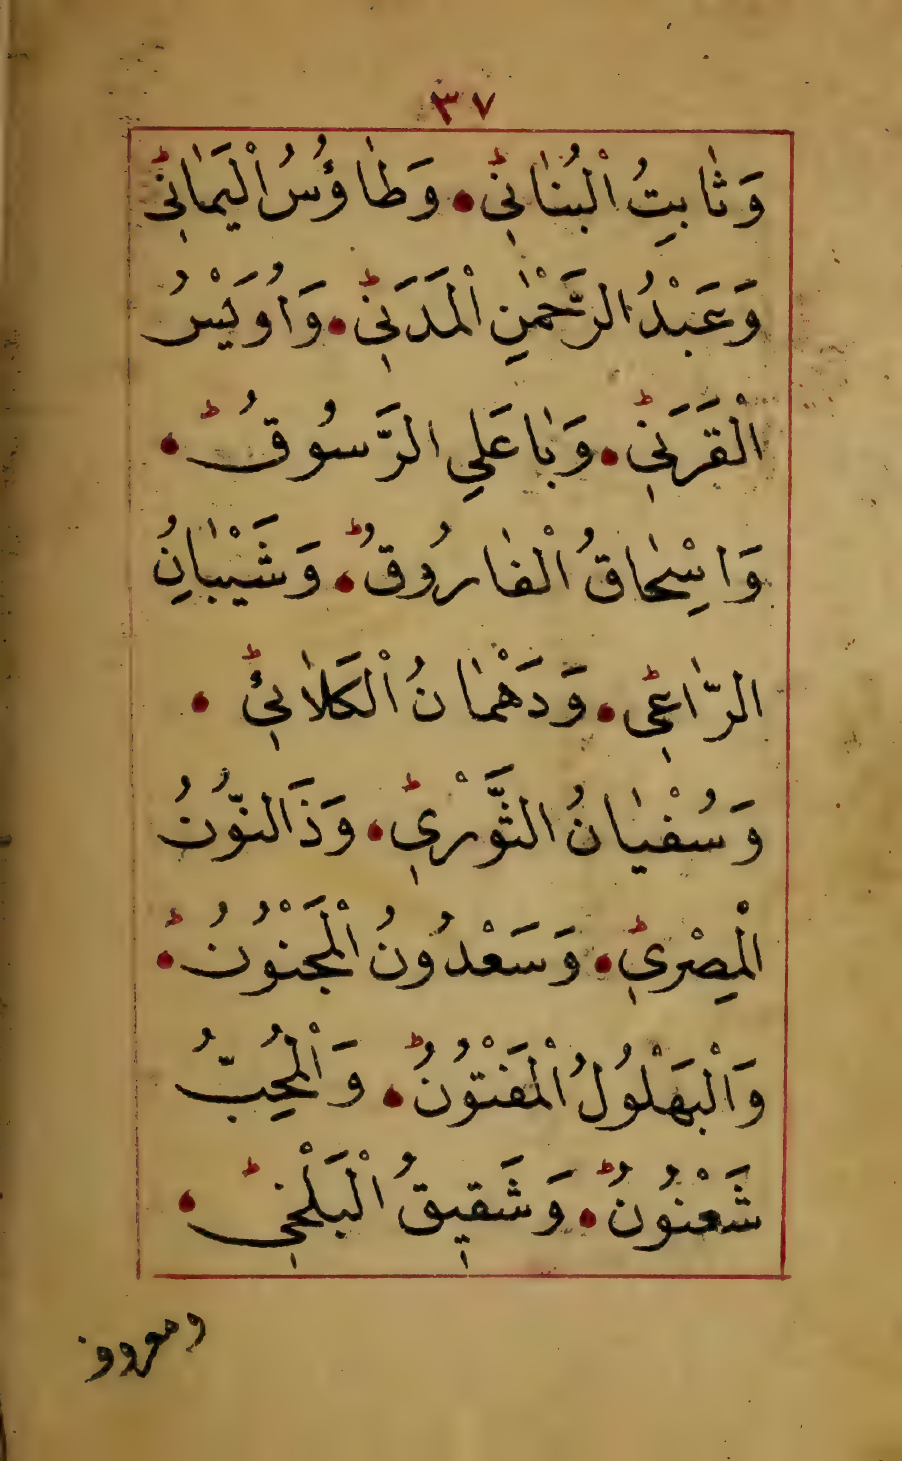 ٣٧
وَثَابِتُ الْبُنَانِي ط وَطَاؤُسُ الْيَمَانِي ط
وَعَبْدُ الرَّحْمٰنِ الْمَدَنِي ط وَاُوَيْسُ
الْقَرَنِي ط وَبَا عَلِي الرَّسُوقُ ط
وَاِسْحَاقُ الْفَارُوقُ ط وَشَيْبَانُ
الرَّاعِي ط وَدَهْمَانُ الْكَلَائِي ط
وَسُفْيَانُ الثَّوْرِي ط وَذَالنُّونُ
الْمِصْرِي ط وَسَعْدُونُ الْمَجْنُونُ ط
وَالْبَهْلُولُ الْمَفْتُونُ ط وَالْمُحِبُّ
شَعْنُونُ ط وَشَقِيقُ الْبَلْخِي ط
ومعروف